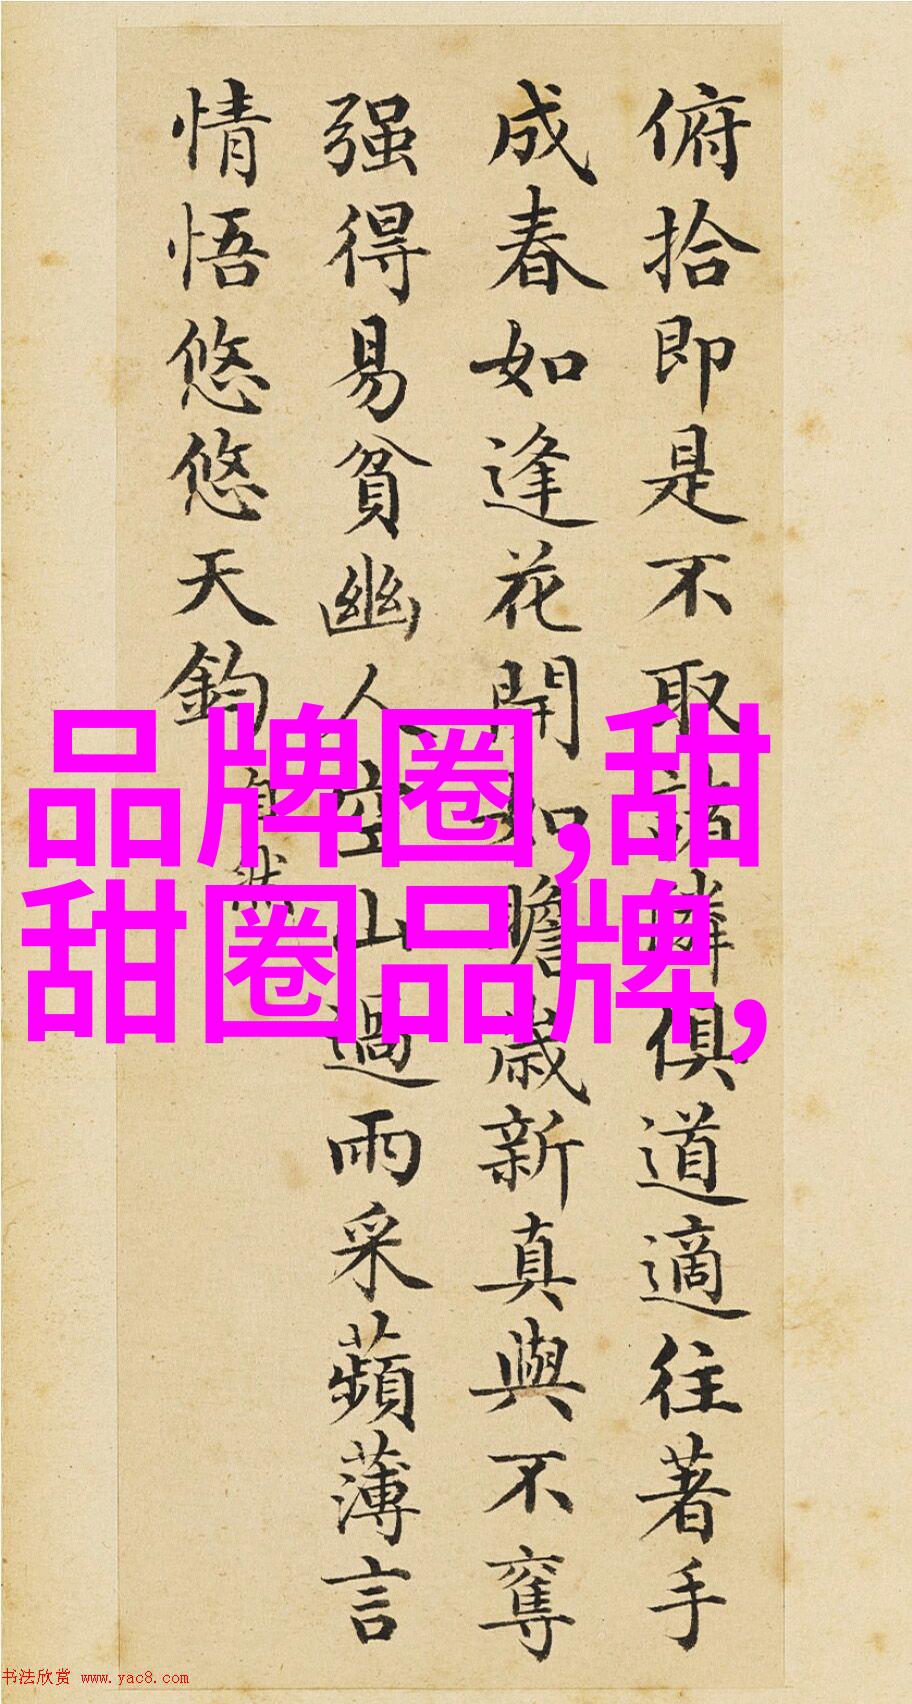 俯拾即是不取諸隣俱道適往著手
成春如逢花開如瞻歲新真與不奪
强得易貧幽人空山過雨采蘋薄言
情悟悠悠天鈞
自然
品牌圈,甜
甜圈品牌,
书法欣赏 www.yac8.com